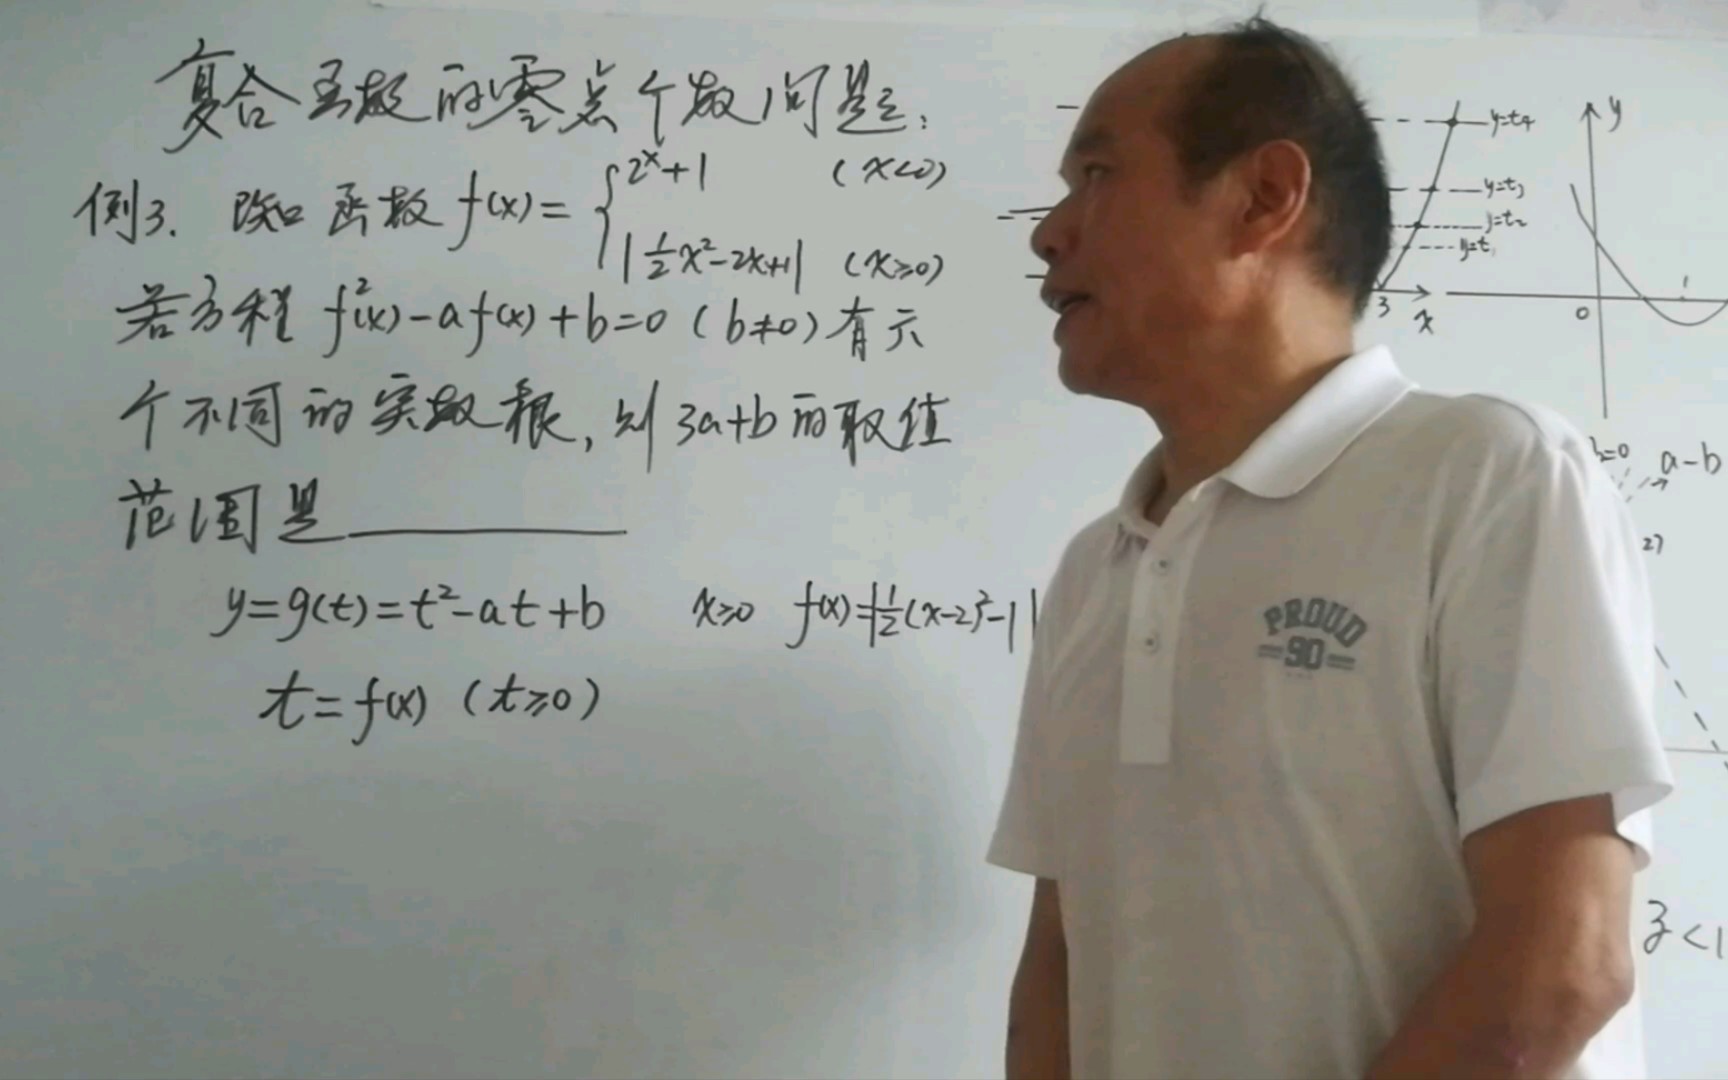 复合函数的零点个数问题:
例3. 已知函数 f(x)= { 2ˣ+1 (x<0)
|½x²-2x+1| (x≥0)
若方程 f²(x)-af(x)+b=0 (b≠0) 有六
个不同的实数根, 则 3a+b 的取值
范围是________
y=g(t)=t²-at+b x≥0 f(x)=|½(x-2)²-1|
t=f(x) (t≥0)
y=t₄
y=t₃
y=t₂
y=t₁
3 x
y
0 1
b=0 a-b
27
3<1
PROUD
90